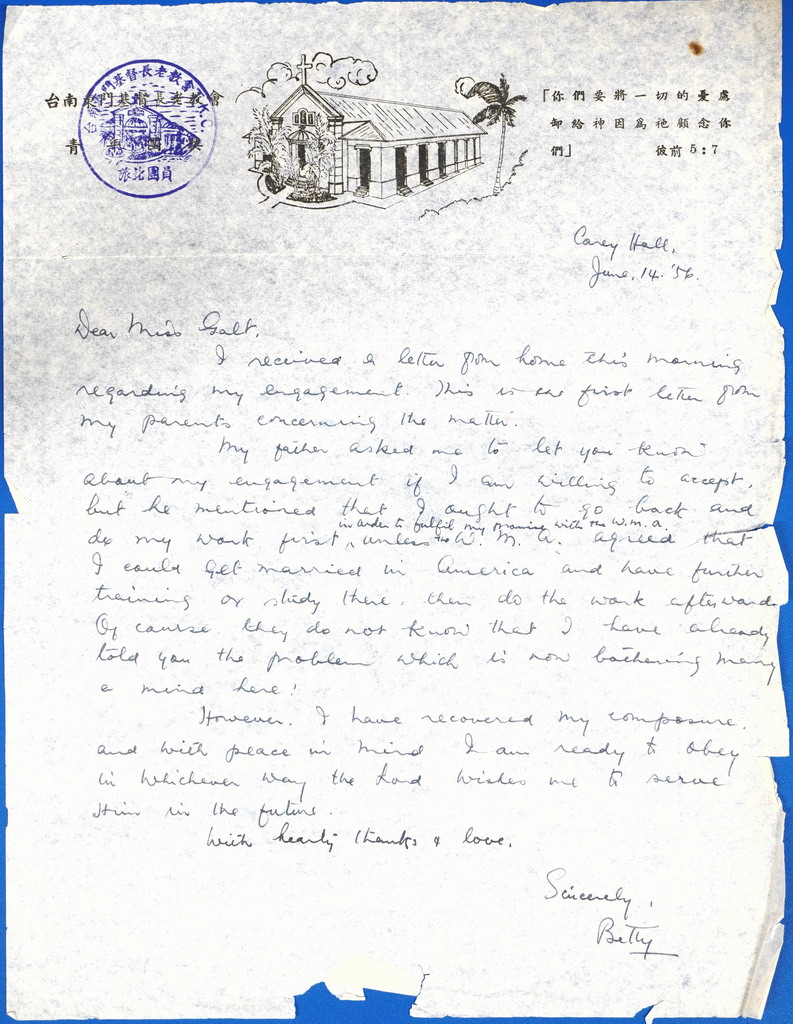 台南東門基督長老教會
青年團契
旅北團員
「你們要將一切的憂慮
卸給神因爲祂顧念你
們」 彼前5:7
Carey Hall,
June, 14. '56.
Dear Miss Galt,
I received a letter from home this morning
regarding my engagement. This is the first letter from
my parents concerning the matter.
My father asked me to let you know
about my engagement if I am willing to accept,
but he mentioned that I ought to go back and
in order to fulfil my promise with the W.M.A.
do my work first, unless the W. M. A. agreed that
I could get married in America and have further
training or study there, then do the work afterwards.
Of course they do not know that I have already
told you the problem which is now bothering many
a mind here!
However, I have recovered my composure,
and with peace in mind I am ready to obey
in whichever way the Lord wishes me to serve
Him in the future.
With hearty thanks & love.
Sincerely,
Betty